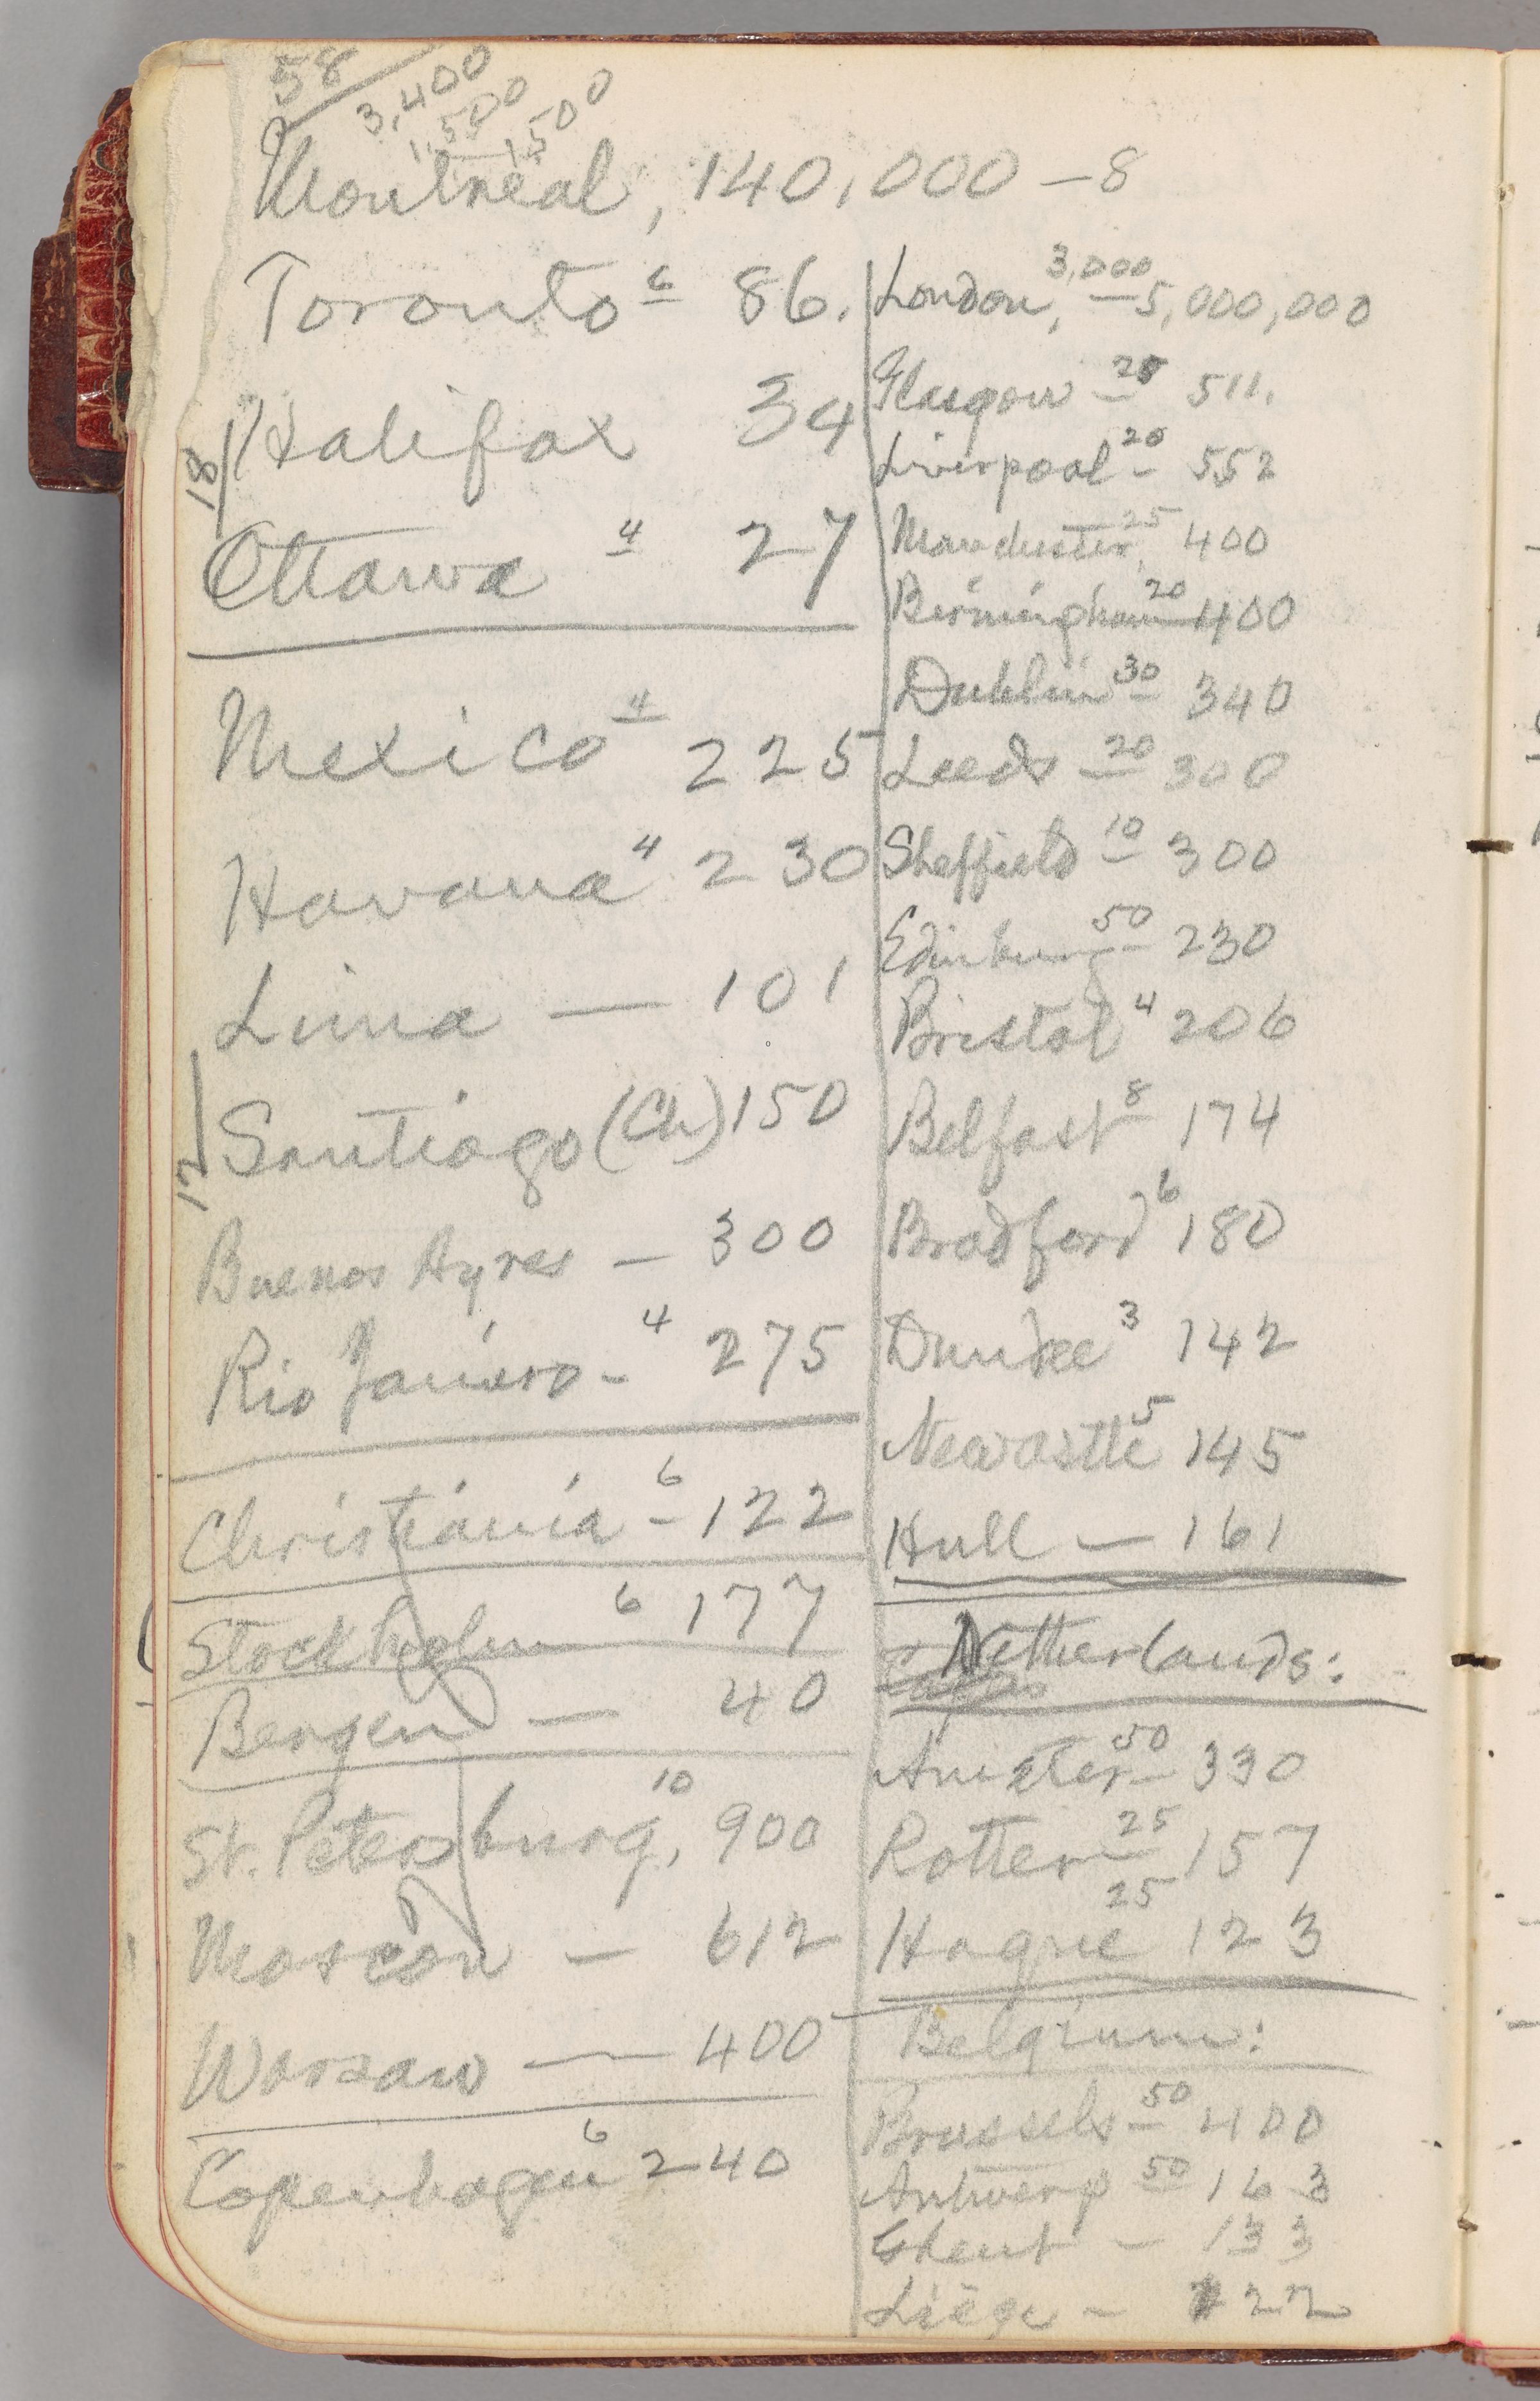 58
3,400
1,500 1,500
Montreal, 140,000 - 8
Toronto 6 86.
Halifax 34
18
Ottawa 4 27
Mexico 4 225
Havana 4 230
Lima — 101
Santiago (Ch) 150
17
Buenos Ayres — 300
Rio Janiero - 4 275
Christiania 6 - 122
Stockholm 6 177
Bergen — 40
St. Petersburg, 10 900
Moscow — 612
Warsaw — 400
Copenhagen 6 240
London, 3,000 — 5,000,000
Glasgow - 25 511.
Liverpool 20 - 552
Manchester, 25 400
Birmingham 20 400
Dublin 30 340
Leeds - 20 300
Sheffield 10 300
Edinburg 50 - 230
Bristol 4 206
Belfast 8 174
Bradford 6 180
Dundee 3 142
Newcastle 5 145
Hull — 161
Netherlands:
Amster 50 - 330
Rotter 25 157
Hague 25 123
Belgium:
Brussels 50 - 400
Antwerp 50 163
Ghent - 133
Liége - 122